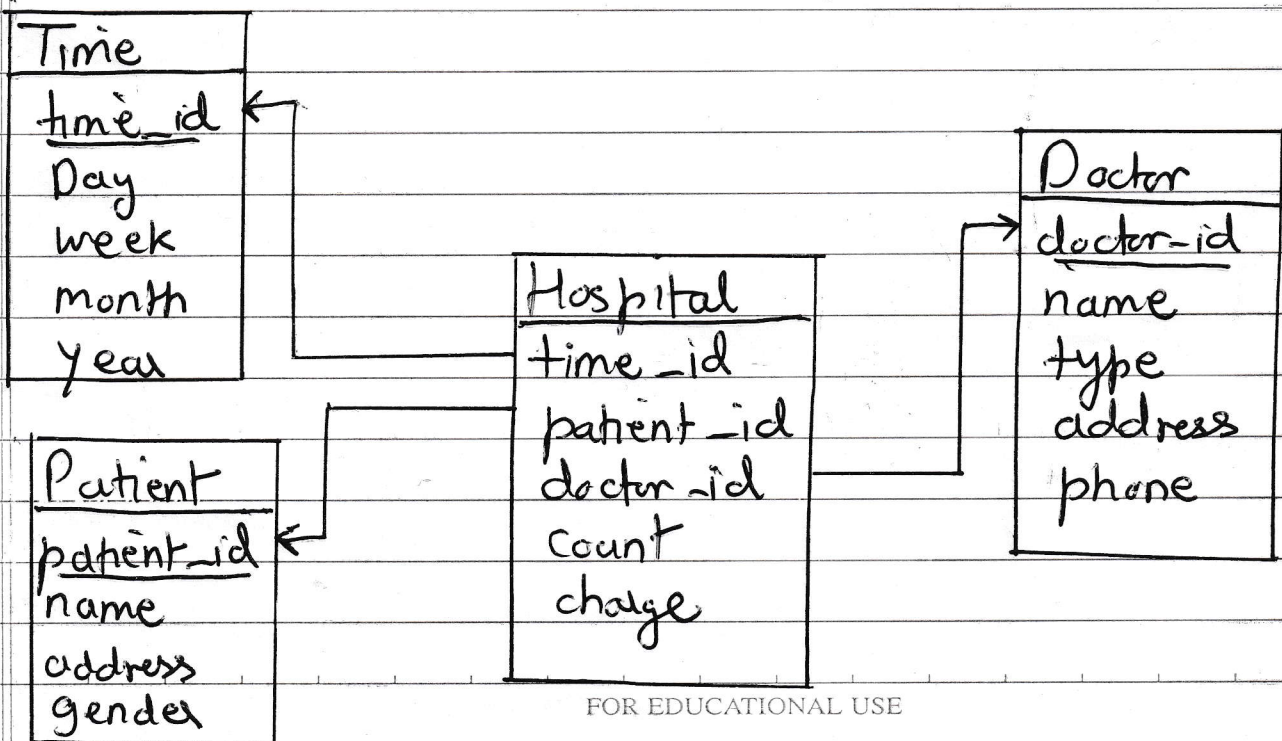 Time
time_id
Day
week
month
year
Patient
patient_id
name
address
gender
Hospital
time_id
patient_id
doctor_id
count
charge
Doctor
doctor-id
name
type
address
phone
FOR EDUCATIONAL USE